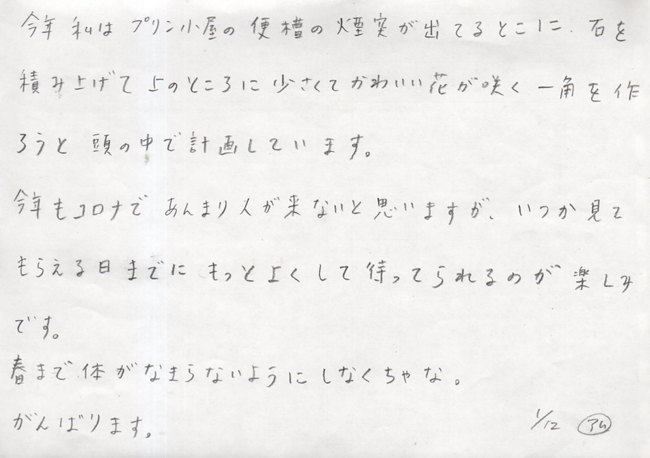 今年 私は プリン小屋の 便槽の 煙突が出てるとこに、石を
積み上げて 上のところに 少さくて かわいい 花が咲く 一角を 作
ろうと 頭の中で 計画しています。
今年もコロナで あんまり人が来ないと思いますが、いつか見て
もらえる日までに もっとよくして 待ってられるのが 楽しみ
です。
春まで 体が なまらないようにしなくちゃな。
がんばります。 1/12 アム